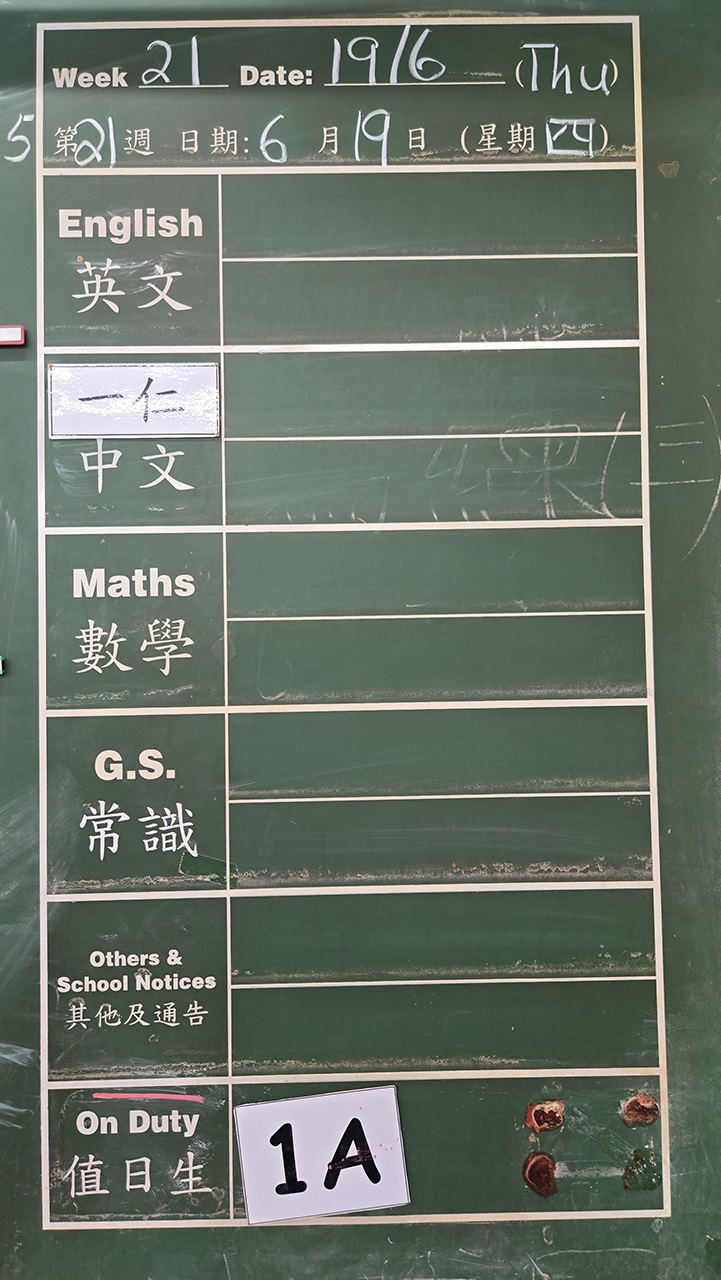 Week 21 Date: 19/6 (Thu)
5 第21週 日期: 6 月 19 日 (星期四)
English
英文
一仁
中文
Maths
數學
G.S.
常識
Others &
School Notices
其他及通告
On Duty
值日生
1A